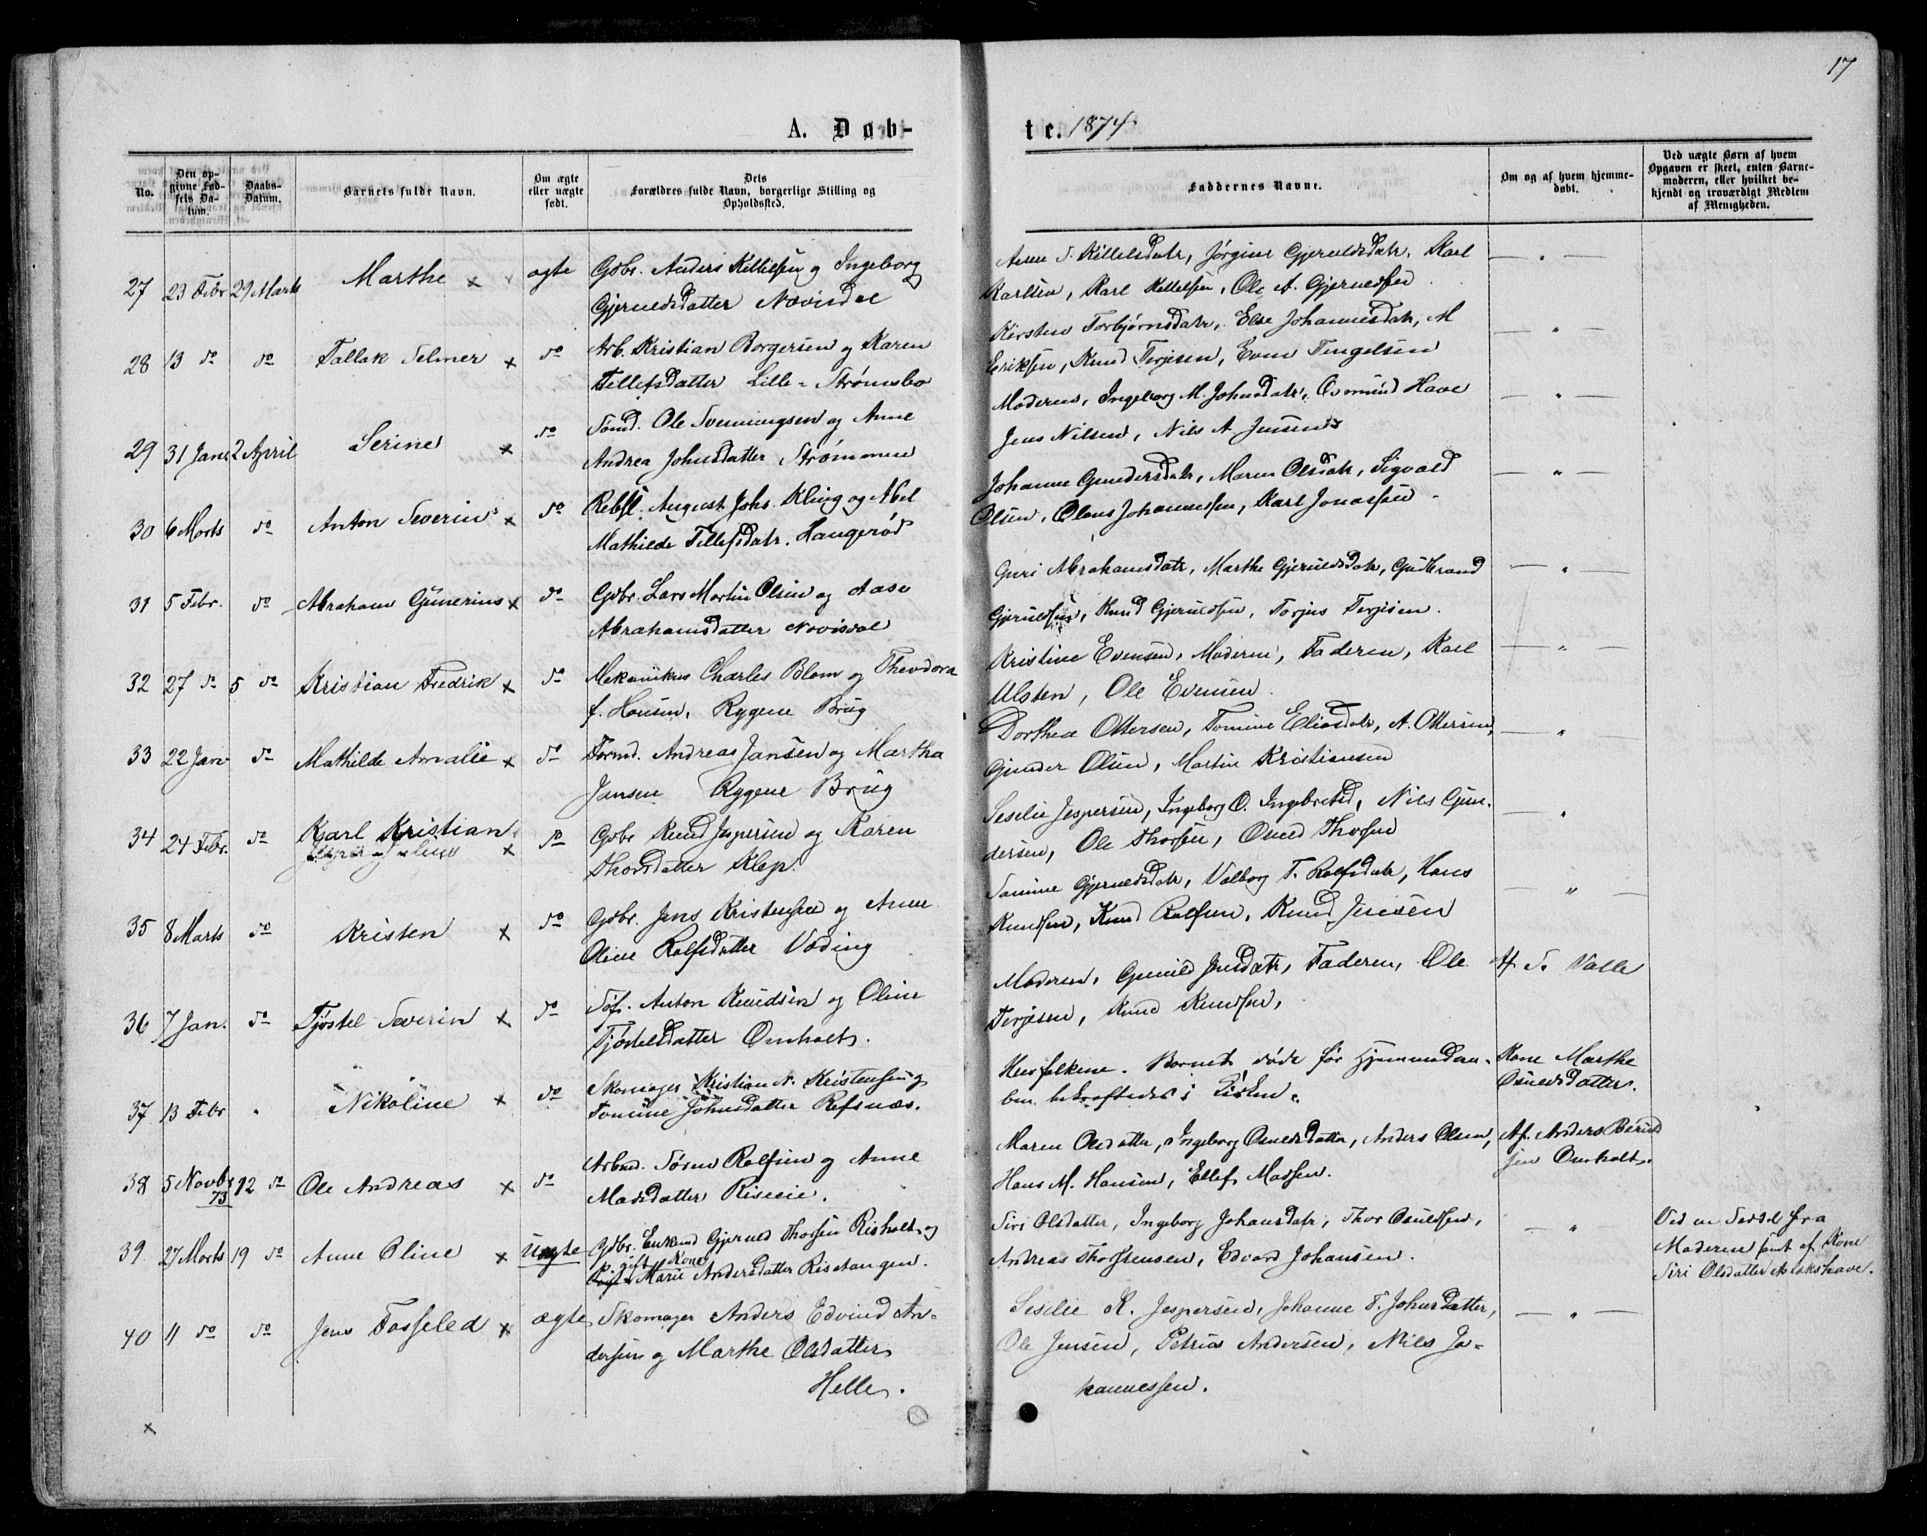 17
A. Døb-
te. 1874
No.
Den op-
givne Fød-
sels Da-
tum.
Daabs-
Datum.
Barnets fulde Navn.
Om ægte
eller uægte
født.
Dets
Forældres fulde Navn, borgerlige Stilling og
Opholdssted.
Faddernes Navne.
Om og af hvem hjemme-
døbt.
Ved uægte Børn af hvem
Opgaven er skeet, enten Barne-
moderen, eller hvilket be-
kjendt og troværdigt Medlem
af Menigheden.
27 23 Febr 29 Marts Marthe × ægte Gdbr. Anders Kittilsen og Ingeborg
Gjeruldsdatter Nævisdal
Kittelsdatr, Jørgine Gjeruldsdatr, Karl
Karlsen, Karl Kittelsen, Ole A. Gjeruldsen
28 13 do do Tallak Selmer × do Arb. Kristian Borgersen og Karen
Tellefsdatter Lille-Strømsbo
Kirsten Torbjørnsdatr, Else Johannesdatr, M
Eriksen, Knud Terjesen, Even Tengelsen
29 31 Jan 2 April Serine × do Tømd. Ole Svenningsen og Anne
Andrea Johnsdatter Strømmen
Moderen, Ingeborg M. Johnsdatr, Osmund Have
Jens Nilsen, Nils A. Jensen
30 6 Marts do Anton Severin × do Rebsl. August Johs. Kling og Abel
Mathilde Tellefsdatr. Haugerød
Johanne Gundersdatr, Maren Olsdatr, Sigvald
Olsen, Olaus Johannessen, Karl Jonassen
31 5 Febr. do Abraham Gunerius × do Gdbr. Lars Martin Olsen og Aase
Abrahamsdatter Nævisdal
Guri Abrahamsdatr, Marthe Gjeruldsdatr, Gudbrand
Gjeruldsen, Knud Gjeruldsen, Torjus Terjesen.
32 27 do 5 do Kristian Fredrik × do Mekanikus Charles Blom og Theodora
f. Hansen, Rygene Brug
Kristine Evensen, Moderen, Faderen, Karl
Ulsten, Ole Evensen.
33 22 Jan do Mathilde Amalie × do Formd. Andreas Jansen og Martha
Jansen Rygene Brug
Dorthea Ottersen, Tomine Eliasdatr, A. Ottersen,
Gunder Olsen, Martin Kristiansen
34 24 Febr. do Karl Kristian × do Gdbr Knud Jespersen og Karen
Thorsdatter Klep.
Seselie Jespersen, Ingeborg O. Ingebretsd, Nils Gun-
dersen, Ole Thorsen, Osuld Thorsen
35 8 Marts do Kristen × do Gdbr. Jens Kristensen og Anne
Oline Rolfsdatter Vøding
Samine Gjeruldsdatr, Valborg T. Rolfsdatr, Hans
Knudsen, Knud Rolfsen, Knud Jensen
36 7 Jan. do Tjøstel Severin × do Søf. Anton Knudsen og Oline
Tjøstelsdatter Omholt.
Moderen, Gunild Jensdatr, Faderen, Ole
Terjesen, Knud Knudsen,
Af S. Valle
37 13 Febr Nikoline × do Skomager Kristian N. Kristensen og
Tomine Johnsdatter Refsnæs.
Huusfolkene. Barnet døde før Hjemmedaa-
ben bekræftedes i Kirken.
Kone Marthe
Osuldsdatter.
38 5 Novbr 73 12 do Ole Andreas × do Arbmd. Søren Rolfsen og Anne
Madsdatter Riseeie.
Maren Olsdatter, Ingeborg Osuldsdatter, Anders Olsen,
Hans M. Hansen, Ellef Madsen.
Af. Anders Berntd
sen Omholt.
39. 27 Marts 19 do Anne Oline × Uægte Gdbr. Enkemd Gjeruld Thorsen Risholt og
p. gift Kone
Marie Andersdatter Risetangen.
Siri Olsdatter, Ingeborg Johansdatr, Thor Osuldsen,
Andreas Thorstensen, Edvard Johansen.
Ved en Seddel fra
Moderen samt af Kone
Siri Olsdatter Aslakshave.
40 11 do do Jens Fosseled × ægte Skomager Anders Edvind An-
dersen og Marthe Olsdatter
Helle.
Seselie K. Jespersen, Johanne T. Johnsdatter,
Ole Jensen, Petrius Andersen, Nils Jo-
hannessen.